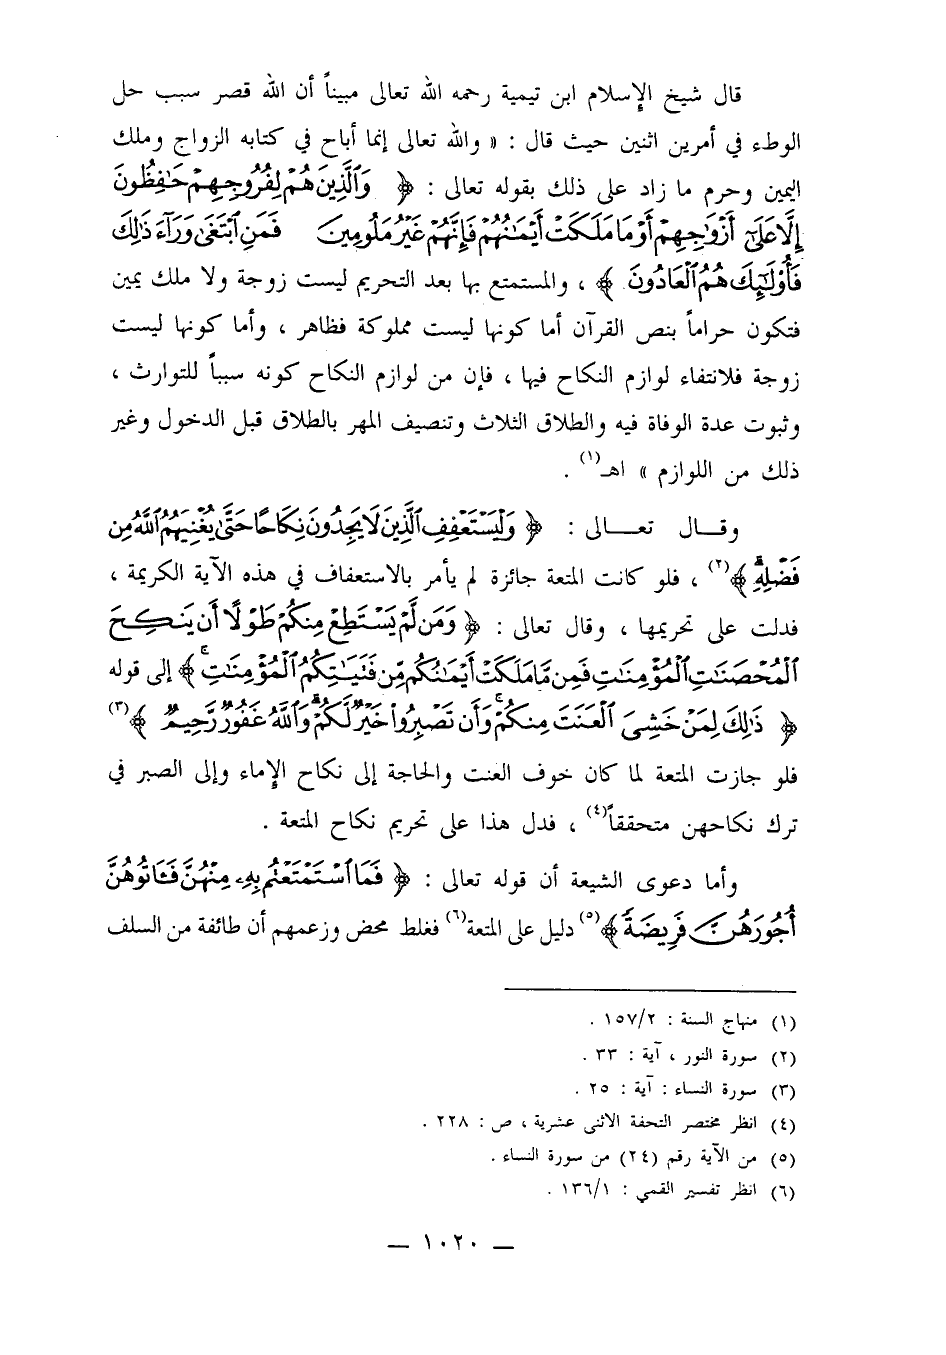 قال شيخ الإسلام ابن تيمية رحمه الله تعالى مبيناً أن الله قصر سبب حل
الوطء في أمرين اثنين حيث قال : « والله تعالى إنما أباح في كتابه الزواج وملك
اليمين وحرم ما زاد على ذلك بقوله تعالى : ﴿ وَالَّذِينَ هُمْ لِفُرُوجِهِمْ حَافِظُونَ
إِلَّا عَلَىٰ أَزْوَاجِهِمْ أَوْ مَا مَلَكَتْ أَيْمَانُهُمْ فَإِنَّهُمْ غَيْرُ مَلُومِينَ فَمَنِ ابْتَغَىٰ وَرَاءَ ذَٰلِكَ
فَأُولَٰئِكَ هُمُ الْعَادُونَ ﴾ ، والمستمتع بها بعد التحريم ليست زوجة ولا ملك يمين
فتكون حراماً بنص القرآن أما كونها ليست مملوكة فظاهر ، وأما كونها ليست
زوجة فلانتفاء لوازم النكاح فيها ، فإن من لوازم النكاح كونه سبباً للتوارث ،
وثبوت عدة الوفاة فيه والطلاق الثلاث وتنصيف المهر بالطلاق قبل الدخول وغير
ذلك من اللوازم » اهـ(١) .
وقــال تعــالى : ﴿ وَلْيَسْتَعْفِفِ الَّذِينَ لَا يَجِدُونَ نِكَاحًا حَتَّىٰ يُغْنِيَهُمُ اللَّهُ مِن
فَضْلِهِ ﴾(٢) ، فلو كانت المتعة جائزة لم يأمر بالاستعفاف في هذه الآية الكريمة ،
فدلت على تحريمها ، وقال تعالى : ﴿ وَمَن لَّمْ يَسْتَطِعْ مِنكُمْ طَوْلًا أَن يَنكِحَ
الْمُحْصَنَاتِ الْمُؤْمِنَاتِ فَمِن مَّا مَلَكَتْ أَيْمَانُكُم مِّن فَتَيَاتِكُمُ الْمُؤْمِنَاتِ ﴾ إلى قوله
﴿ ذَٰلِكَ لِمَنْ خَشِيَ الْعَنَتَ مِنكُمْ وَأَن تَصْبِرُوا خَيْرٌ لَّكُمْ وَاللَّهُ غَفُورٌ رَّحِيمٌ ﴾(٣)
فلو جازت المتعة لما كان خوف العنت والحاجة إلى نكاح الإماء وإلى الصبر في
ترك نكاحهن متحققاً(٤) ، فدل هذا على تحريم نكاح المتعة .
وأما دعوى الشيعة أن قوله تعالى : ﴿ فَمَا اسْتَمْتَعْتُم بِهِ مِنْهُنَّ فَآتُوهُنَّ
أُجُورَهُنَّ فَرِيضَةً ﴾(٥) دليل على المتعة(٦) فغلط محض وزعمهم أن طائفة من السلف
(١) منهاج السنة : ١٥٧/٢ .
(٢) سورة النور ، آية : ٣٣ .
(٣) سورة النساء : آية : ٢٥ .
(٤) انظر مختصر التحفة الاثنى عشرية ، ص : ٢٢٨ .
(٥) من الآية رقم (٢٤) من سورة النساء .
(٦) انظر تفسير القمي : ١٣٦/١ .
— ١٠٢٠ —